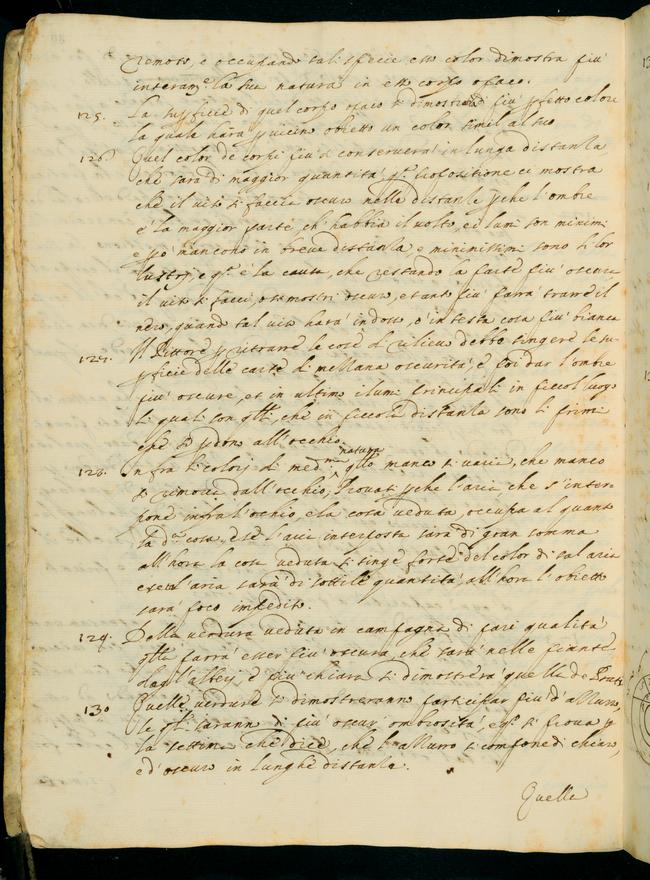 remoto, e occupando tali specie esso color dimostra più
interam.e la sua natura in esso corpo opaco.
125. La supficie di quel corpo opaco si dimostrerà più pfetto colore
la quale harà p vicino obietto un color simil al suo
126 Quel color de corpi più si conserverà in lunga distanza
che sarà di maggior quantità, q.ta proposizione ci mostra
che il viso si faccia oscuro nelle distanze pche l'ombre
è la maggior parte, ch'habbia il volto, ei lumi son minimi
e pò mancono in breve distanza e minimissimi sono ti lor
lustri, e q.ta è la causa, che restando la parte più oscura
il viso si facci, o si mostri oscuro, et tanto più parrà trarre il
nero, quando tal viso harà in dosso, ò in testa cosa più bianca
127. Il Pittore p ritrarre le cose di rilievo debbe tingere le su-
pficie delle carte di mezzana oscurità, e poi dar l'ombre
più oscure, et in ultimo i lumi principali in piccol luogo
li quali son q.lli, che in piccola distanza sono li primi
che si pdono all'occhio.
128. Infra li colorj di med.ma natura q.llo manco si varia, che manco
si rimove dall'occhio, provasi pche l'aria, che s'inter-
pone infra l'occhio, e la cosa veduta, occupa al quanto
la d.a cosa, e se l'aria interposta sarà di gran somma
all'hora la cosa veduta si tinge forte del color di tal aria
e se tal aria sarà di sottile quantità all'hora l'obietto
sarà poco impedito.
129. Della verdura veduta in campagna di pari qualità
q.lla parrà esser più oscura, che sarà nelle piante
degl'alberj, e più chiara si dimostrerà quella de Prati
130 Quelle verdure si dimostreranno partecipar più d'azzurro,
le q.li saranno di più oscur' ombrosità, e q.to si prova p
la settima che dice, che l'azzurro si compone di chiaro,
ed'oscuro in lunghe distanze.
Quelle